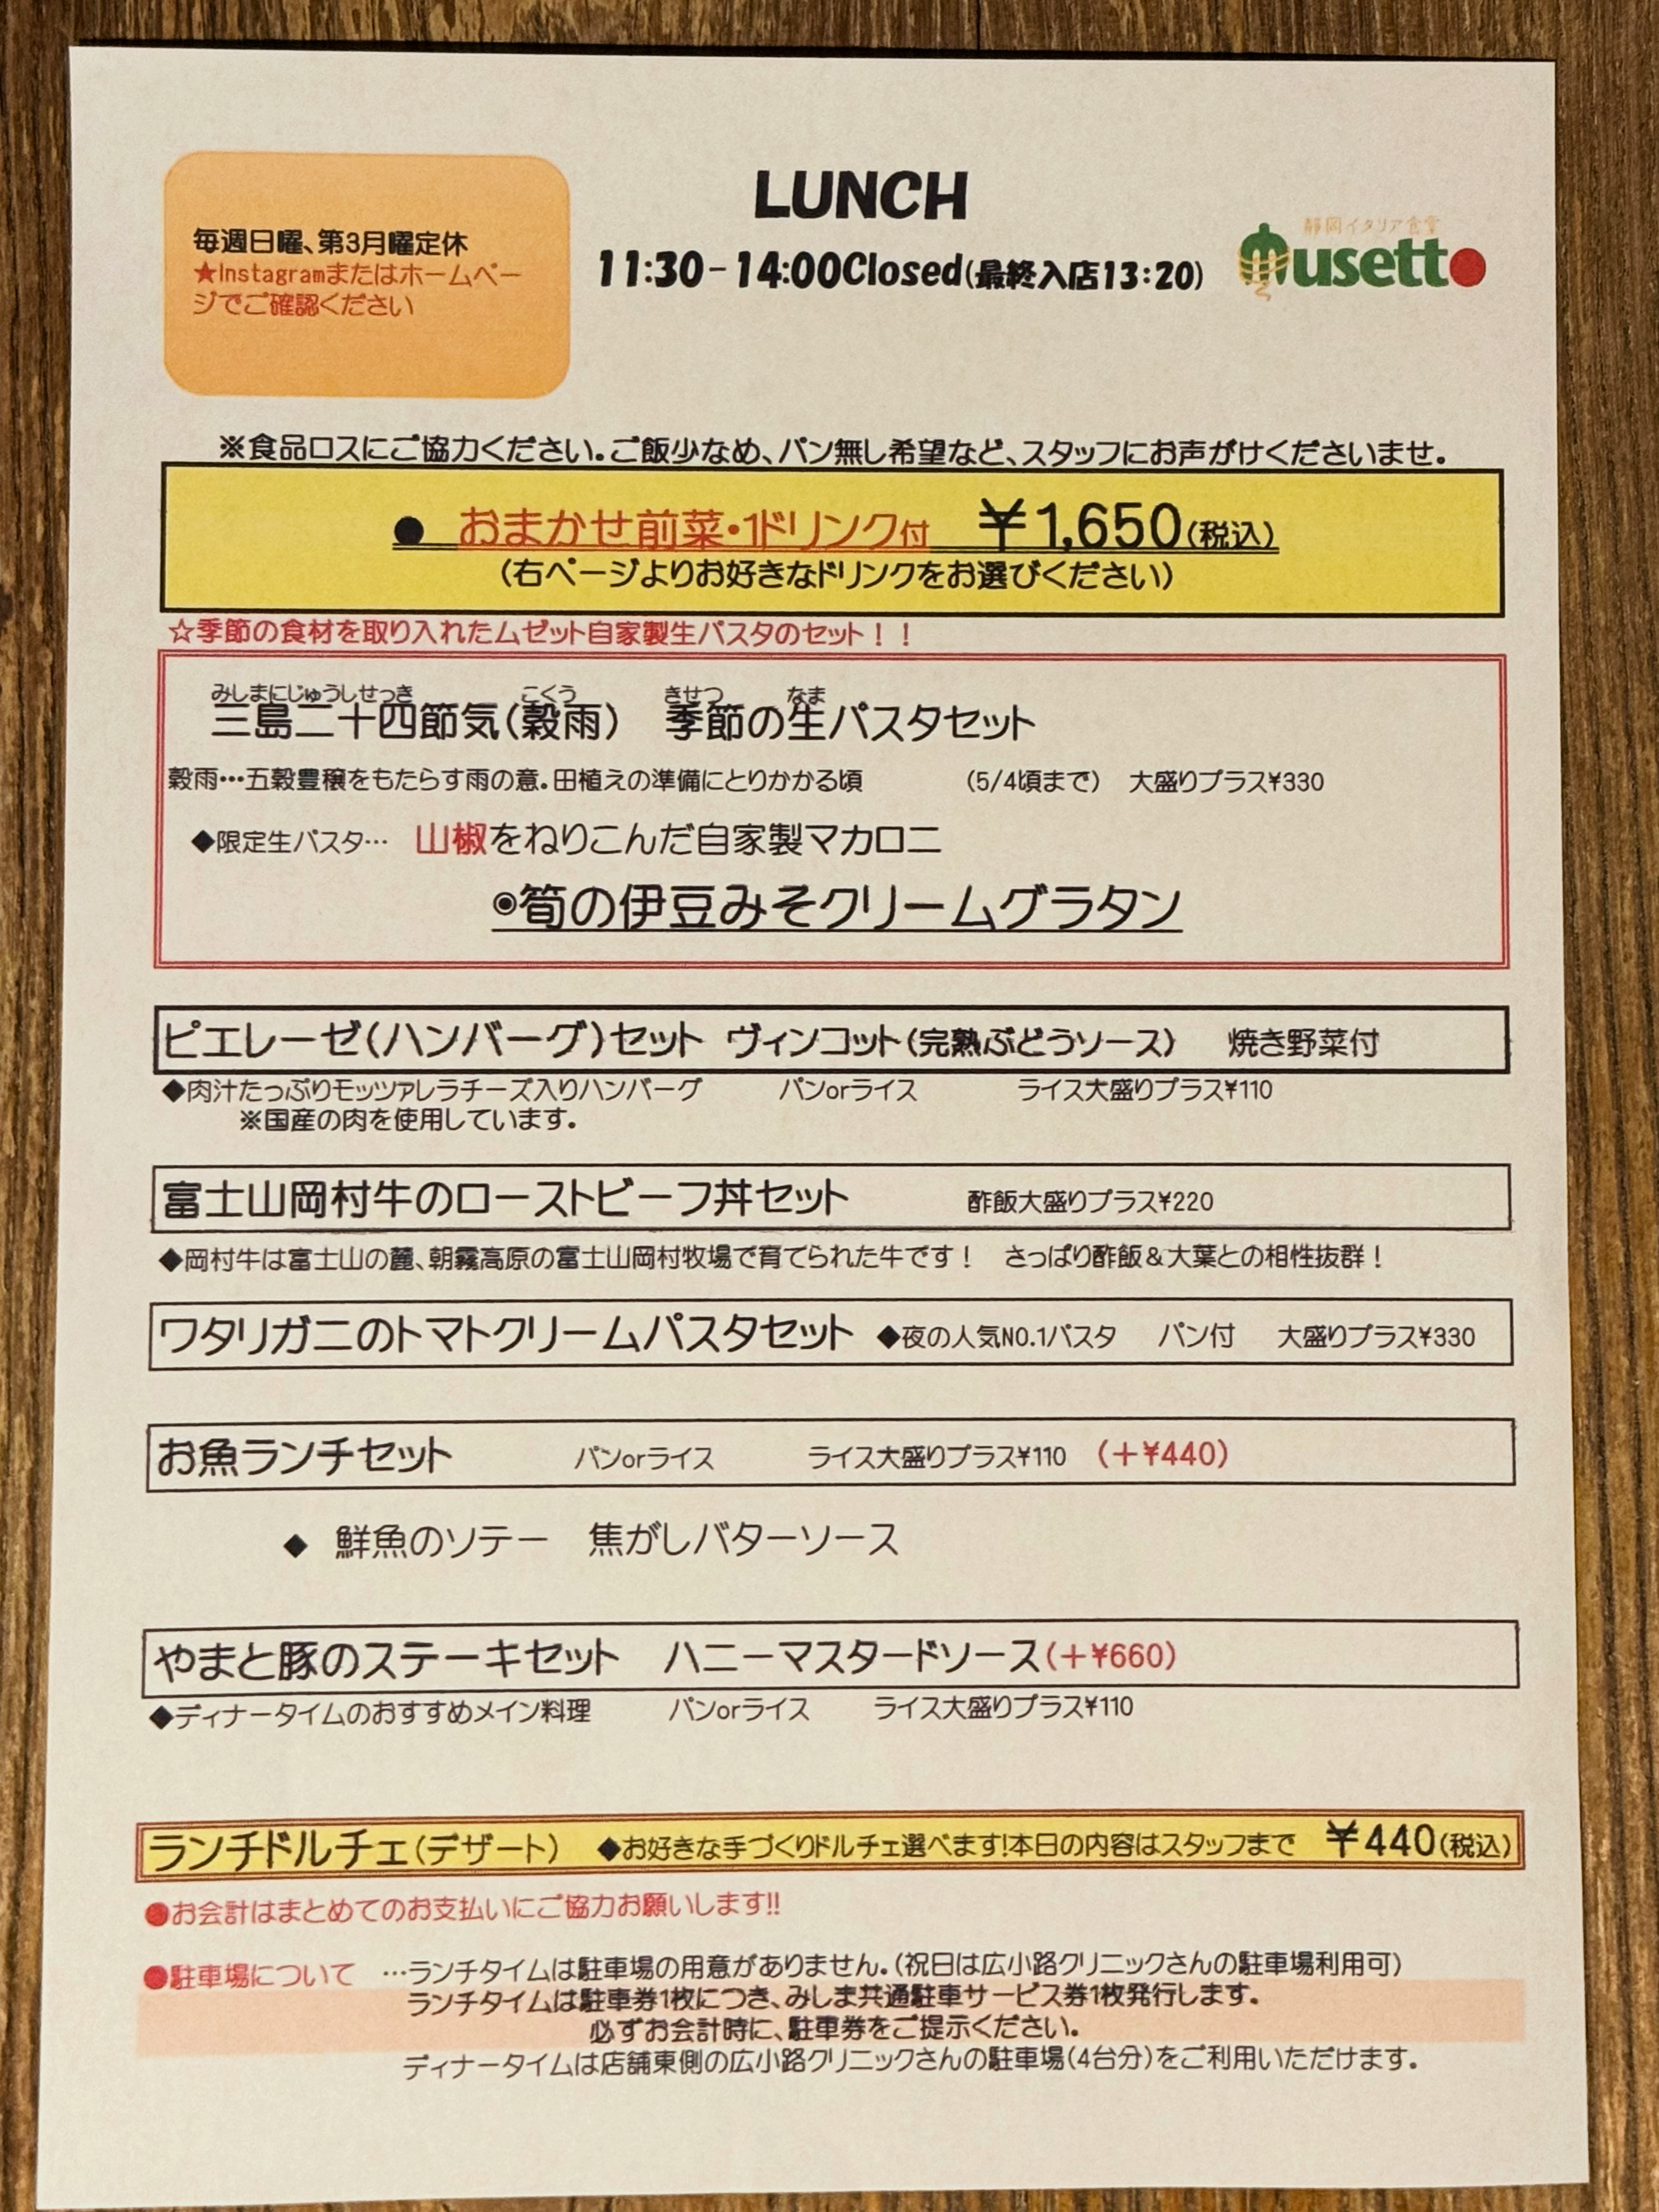 毎週日曜、第3月曜定休
★Instagramまたはホームペー
ジでご確認ください
LUNCH
11:30-14:00Closed(最終入店13:20)
静岡イタリア食堂
musetto
※食品ロスにご協力ください。ご飯少なめ、パン無し希望など、スタッフにお声がけくださいませ。
● おまかせ前菜・1ドリンク付 ￥1,650(税込)
(右ページよりお好きなドリンクをお選びください)
☆季節の食材を取り入れたムゼット自家製生パスタのセット！！
みしまにじゅうしせっき こくう きせつ なま
三島二十四節気(穀雨) 季節の生パスタセット
穀雨…五穀豊穣をもたらす雨の意。田植えの準備にとりかかる頃 (5/4頃まで) 大盛りプラス¥330
◆限定生パスタ… 山椒をねりこんだ自家製マカロニ
◉筍の伊豆みそクリームグラタン
ピエレーゼ(ハンバーグ)セット ヴィンコット(完熟ぶどうソース) 焼き野菜付
◆肉汁たっぷりモッツァレラチーズ入りハンバーグ パンorライス ライス大盛りプラス¥110
※国産の肉を使用しています。
富士山岡村牛のローストビーフ丼セット 酢飯大盛りプラス¥220
◆岡村牛は富士山の麓、朝霧高原の富士山岡村牧場で育てられた牛です！ さっぱり酢飯＆大葉との相性抜群！
ワタリガニのトマトクリームパスタセット ◆夜の人気NO.1パスタ パン付 大盛りプラス¥330
お魚ランチセット パンorライス ライス大盛りプラス¥110 (＋¥440)
◆ 鮮魚のソテー 焦がしバターソース
やまと豚のステーキセット ハニーマスタードソース(＋¥660)
◆ディナータイムのおすすめメイン料理 パンorライス ライス大盛りプラス¥110
ランチドルチェ(デザート) ◆お好きな手づくりドルチェ選べます!本日の内容はスタッフまで ￥440(税込)
●お会計はまとめてのお支払いにご協力お願いします!!
●駐車場について …ランチタイムは駐車場の用意がありません。(祝日は広小路クリニックさんの駐車場利用可)
ランチタイムは駐車券1枚につき、みしま共通駐車サービス券1枚発行します。
必ずお会計時に、駐車券をご提示ください。
ディナータイムは店舗東側の広小路クリニックさんの駐車場(4台分)をご利用いただけます。